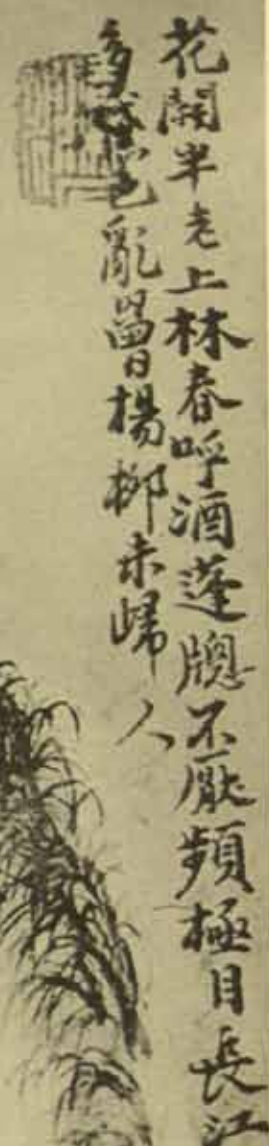 花開半老上林春呼酒蓬牕不厭頻極目長江
多色亂楊柳未歸人